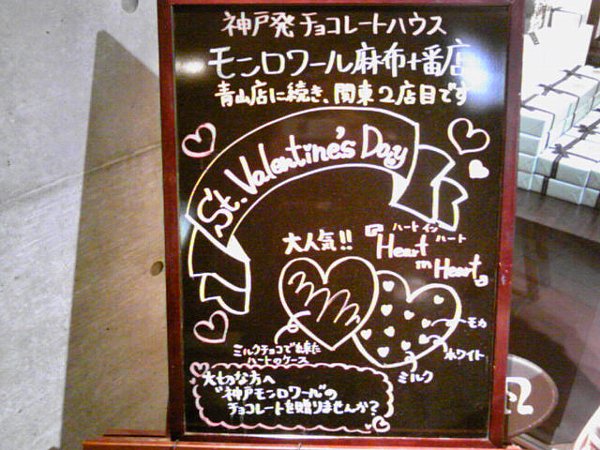 神戸発チョコレートハウス
モンロワール麻布十番店
青山店に続き、関東2店目です
St. Valentine's Day
大人気!!
ハート イン ハート
『Heart
in Heart』
モカ
ホワイト
ミルク
ミルクチョコで出来た
ハートのケース
大切な方へ
"神戸モンロワール"の
チョコレートを贈りませんか?